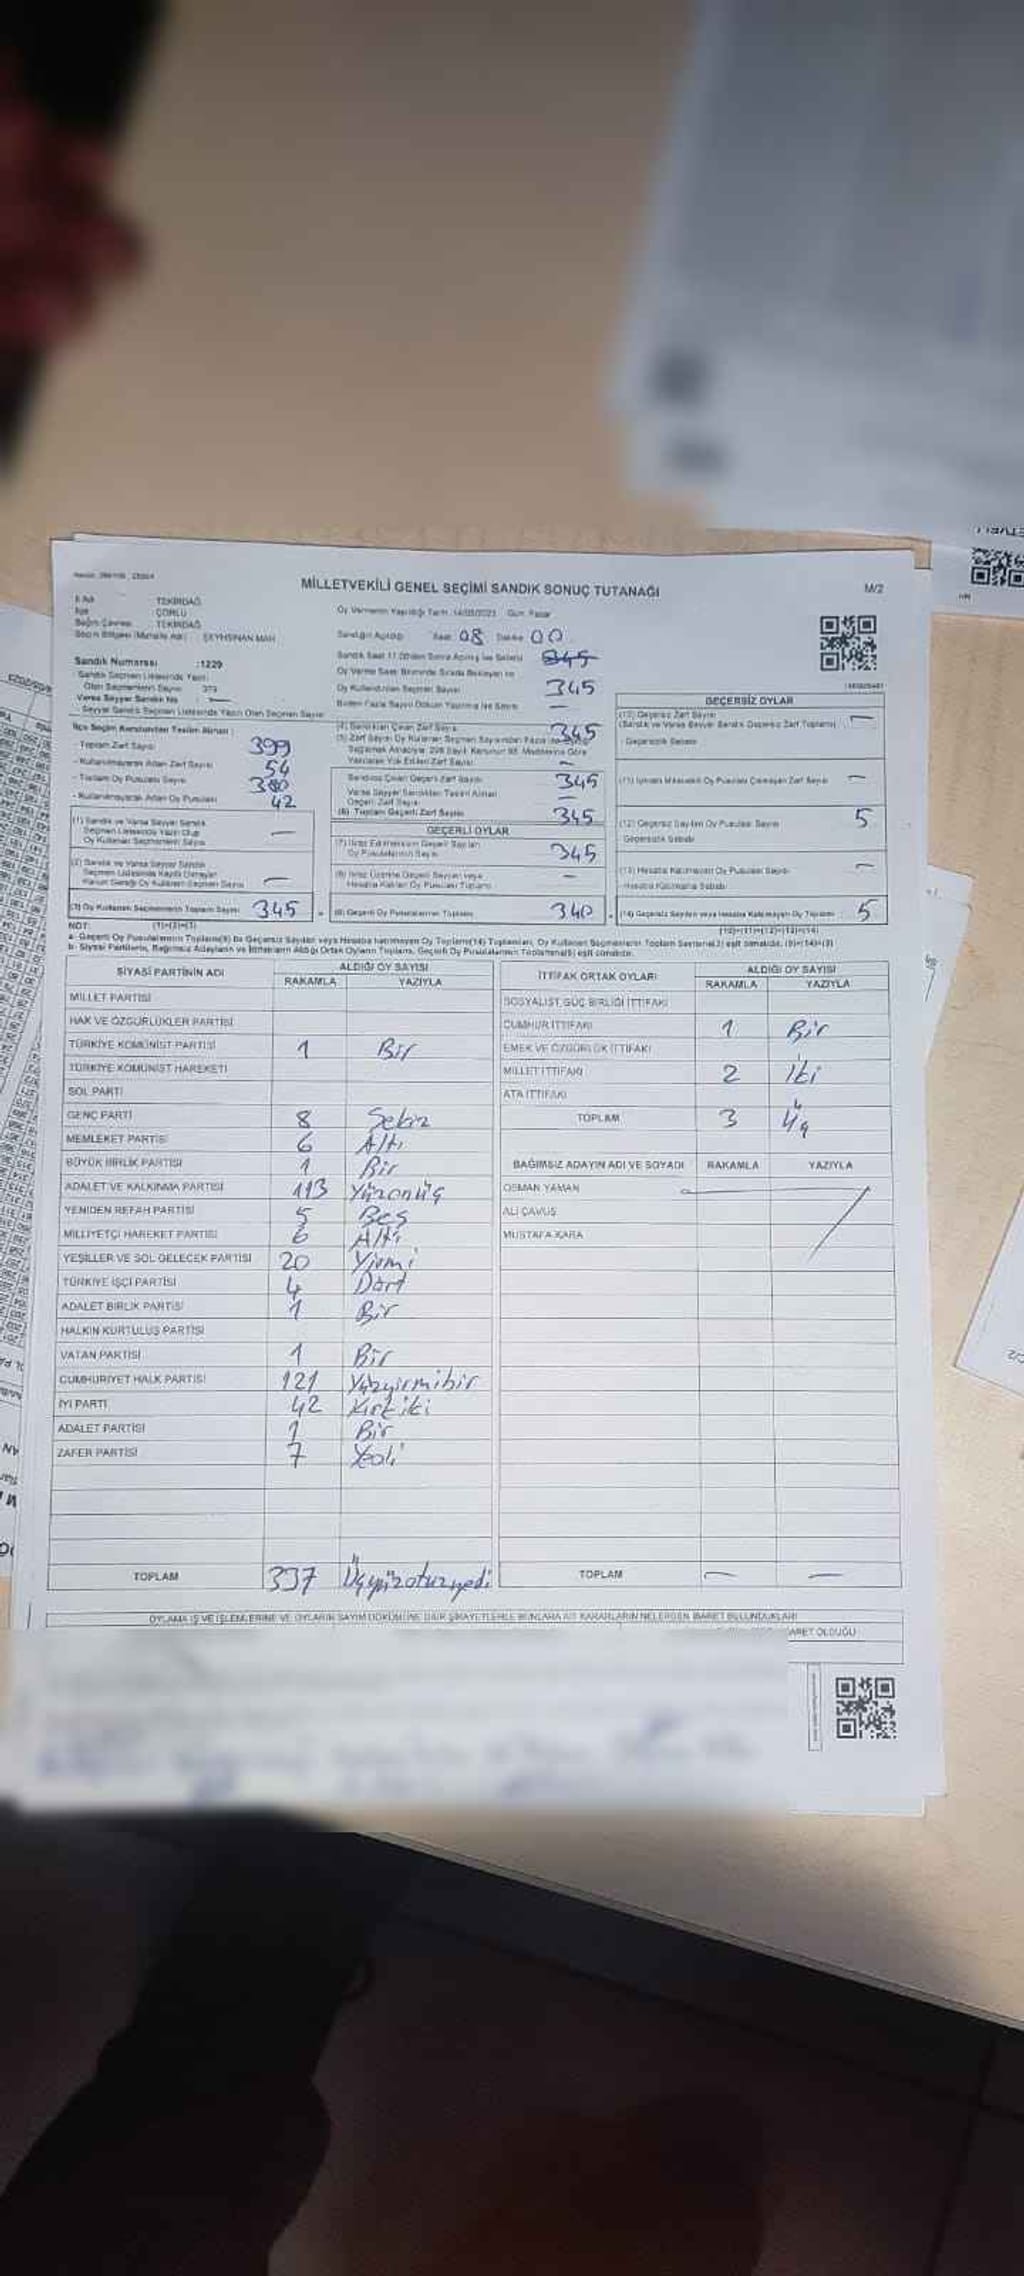 MİLLETVEKİLİ GENEL SEÇİMİ SANDIK SONUÇ TUTANAĞI
M/2
İl Adı TEKİRDAĞ
İlçe ÇORLU
Seçim Çevresi TEKİRDAĞ
Seçim Bölgesi (Mahalle Adı) ŞEYHSİNAN MAH
Sandık Numarası :1229
Sandık Seçmen Listesinde Yazılı
Olan Seçmenlerin Sayısı 379
Varsa Seyyar Sandık No
Seyyar Sandık Seçmen Listesinde Yazılı Olan Seçmen Sayısı
İlçe Seçim Kurulundan Teslim Alınan :
- Toplam Zarf Sayısı 399
- Kullanılmayarak Artan Zarf Sayısı 54
- Toplam Oy Pusulası Sayısı 380
- Kullanılmayarak Artan Oy Pusulası 42
(1) Sandık ve Varsa Seyyar Sandık
Seçmen Listesinde Yazılı Olup
Oy Kullanan Seçmenlerin Sayısı —
(2) Sandık ve Varsa Seyyar Sandık
Seçmen Listesinde Kaydı Olmayan
Kanun Gereği Oy Kullanan Seçmen Sayısı —
(3) Oy Kullanan Seçmenlerin Toplam Sayısı 345
(1)+(2)=(3)
Oy Vermenin Yapıldığı Tarih 14/05/2023 Gün Pazar
Sandığın Açıldığı Saat 08 Dakika 00
345
Oy Kullandırılan Seçmen Sayısı 345
Birden Fazla Sayım Döküm Yapılmış ise Sayısı —
(4) Sandıktan Çıkan Zarf Sayısı 345
Yakılarak Yok Edilen Zarf Sayısı —
Sandıkta Çıkan Geçerli Zarf Sayısı 345
Varsa Seyyar Sandıktan Teslim Alınan
Geçerli Zarf Sayısı —
(6) Toplam Geçerli Zarf Sayısı 345
GEÇERLİ OYLAR
(7) İtiraz Edilmeksizin Geçerli Sayılan
Oy Pusulalarının Sayısı 345
(8) İtiraz Üzerine Geçerli Sayılan veya
Hesaba Katılan Oy Pusulası Toplamı —
(9) Geçerli Oy Pusulalarının Toplamı 340
GEÇERSİZ OYLAR
(10) Geçersiz Zarf Sayısı
(Sandık ve Varsa Seyyar Sandık Geçersiz Zarf Toplamı) —
Geçersizlik Sebebi
—
(12) Geçersiz Sayılan Oy Pusulası Sayısı 5
Geçersizlik Sebebi
(13) Hesaba Katılmayan Oy Pusulası Sayısı —
Hesaba Katılmama Sebebi
(14) Geçersiz Sayılan veya Hesaba Katılmayan Oy Toplamı 5
(10)+(11)+(12)+(13)=(14)
NOT:
a- Geçerli Oy Pusulalarının Toplamı(9) ile Geçersiz Sayılan veya Hesaba katılmayan Oy Toplamı(14) Toplamları, Oy Kullanan Seçmenlerin Toplam Sayısına(3) eşit olmalıdır. (9)+(14)=(3)
b- Siyasi Partilerin, Bağımsız Adayların ve İttifakların Aldığı Ortak Oyların Toplamı, Geçerli Oy Pusulalarının Toplamına(9) eşit olmalıdır.
SİYASİ PARTİNİN ADI ALDIĞI OY SAYISI
RAKAMLA YAZIYLA
MİLLET PARTİSİ
HAK VE ÖZGÜRLÜKLER PARTİSİ
TÜRKİYE KOMÜNİST PARTİSİ 1 Bir
TÜRKİYE KOMÜNİST HAREKETİ
SOL PARTİ
GENÇ PARTİ 8 Sekiz
MEMLEKET PARTİSİ 6 Altı
BÜYÜK BİRLİK PARTİSİ 1 Bir
ADALET VE KALKINMA PARTİSİ 113 Yüzonüç
YENİDEN REFAH PARTİSİ 5 Beş
MİLLİYETÇİ HAREKET PARTİSİ 6 Altı
YEŞİLLER VE SOL GELECEK PARTİSİ 20 Yirmi
TÜRKİYE İŞÇİ PARTİSİ 4 Dört
ADALET BİRLİK PARTİSİ 1 Bir
HALKIN KURTULUŞ PARTİSİ
VATAN PARTİSİ 1 Bir
CUMHURİYET HALK PARTİSİ 121 Yüzyirmibir
İYİ PARTİ 42 Kırkiki
ADALET PARTİSİ 1 Bir
ZAFER PARTİSİ 7 Yedi
TOPLAM 337 Üçyüzotuzyedi
İTTİFAK ORTAK OYLARI ALDIĞI OY SAYISI
RAKAMLA YAZIYLA
SOSYALİST GÜÇ BİRLİĞİ İTTİFAKI
CUMHUR İTTİFAKI 1 Bir
EMEK VE ÖZGÜRLÜK İTTİFAKI
MİLLET İTTİFAKI 2 İki
ATA İTTİFAKI
TOPLAM 3 Üç
BAĞIMSIZ ADAYIN ADI VE SOYADI RAKAMLA YAZIYLA
OSMAN YAMAN
ALİ ÇAVUŞ
MUSTAFA KARA
TOPLAM — —
OYLAMA İŞ VE İŞLEMLERİNE VE OYLARIN SAYIM DÖKÜMÜNE DAİR ŞİKAYETLERLE BUNLARA AİT KARARLARIN NELERDEN İBARET BULUNDUKLARI